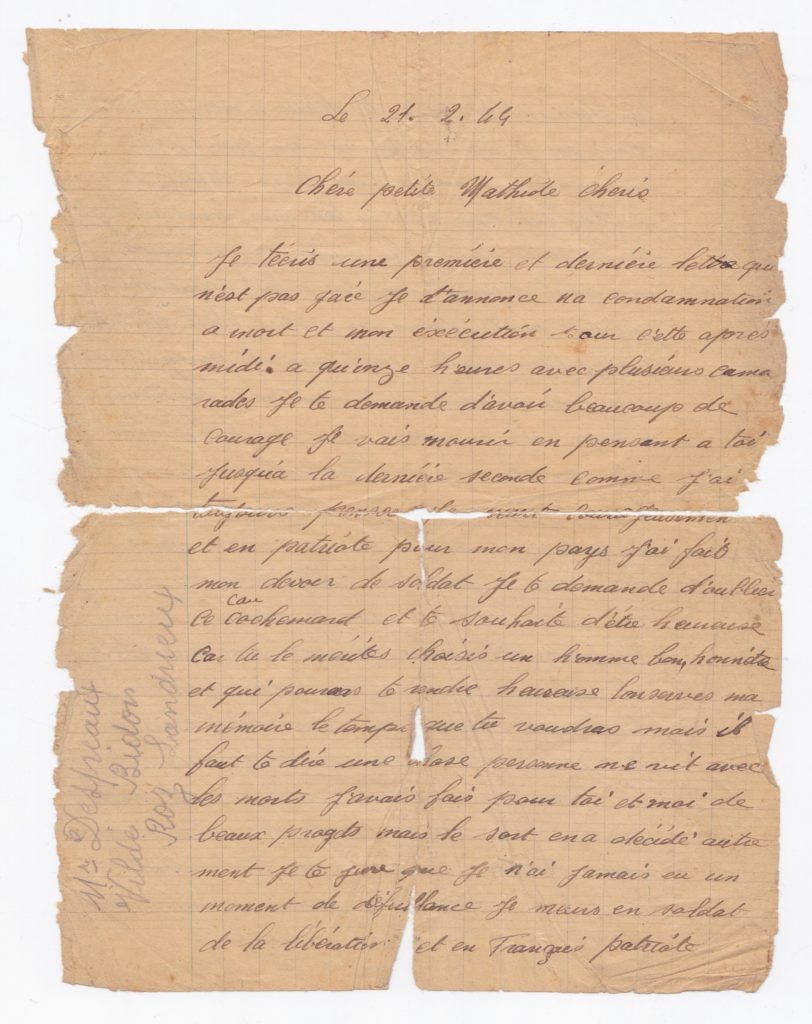 Le 21. 2. 44
Chére petite Mathilde cheris
Je técris une première et dernière lettre qui
n'est pas gaie Je t'annonce ma condamnation
a mort et mon éxécution pour cette après
midi. a quinze heures avec plusieurs cama
rades Je te demande d'avoir beaucoup de
courage Je vais mourir en pensant a toi
jusqu'a la dernière seconde comme J'ai
toujours courageusement
et en patriote pour mon pays J'ai fait
mon devoir de soldat Je te demande d'oublier
ce cauchemard et te souhaite d'être heureuse
cau
car tu le mérites choisis un homme bon, honnète
et qui pourras te rendre heureuse Conserves ma
mémoire le temps que tu voudras mais il
faut te dire une chose personne ne vit avec
les morts J'avais fais pour toi et moi de
beaux progets mais le sort en a décidé autre
ment Je te jure que Je n'ai jamais eu un
moment de défaillance Je meurs en soldat
de la libération et en Français patriote
Mr Despriaux
Bidon
Roz Landrieux